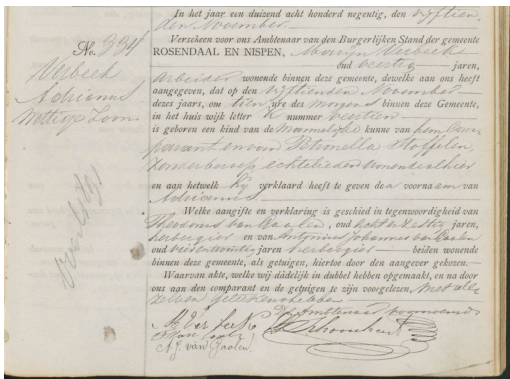 In het jaar een duizend acht honderd negentig, den vijftien-
den November
Verscheen voor ons Ambtenaar van den Burgerlijken Stand der gemeente
No. 334
ROSENDAAL EN NISPEN, Verbeek
oud veertig jaren,
Verbeek
Adrianus
Wettige Zoon.
arbeider wonende binnen deze gemeente, dewelke aan ons heeft
aangegeven, dat op den vijftienden November
dezes jaars, om tien ure des morgens binnen deze Gemeente,
in het huis wijk letter K nummer veertien
is geboren een kind van de mannelijke kunne van hem Com-
parant en van Petronella Stoffelen,
zonder beroep echtelieden wonende alhier
en aan hetwelk hij verklaard heeft te geven den voornaam van
Adrianus
Welke aangifte en verklaring is geschied in tegenwoordigheid van
Theodorus van Gaalen, oud acht en zestig jaren,
herbergier en van Antonius Johannes van Gaalen
oud jaren herbergier beiden wonende
binnen deze gemeente, als getuigen, hiertoe door den aangever gekozen.
Waarvan akte, welke wij dadelijk in dubbel hebben opgemaakt, en na door
ons aan den comparant en de getuigen te zijn voorgelezen met alle
zelven geteekend hebben
De Ambtenaar voornoemd
M Verbeek
A. J. van Gaalen